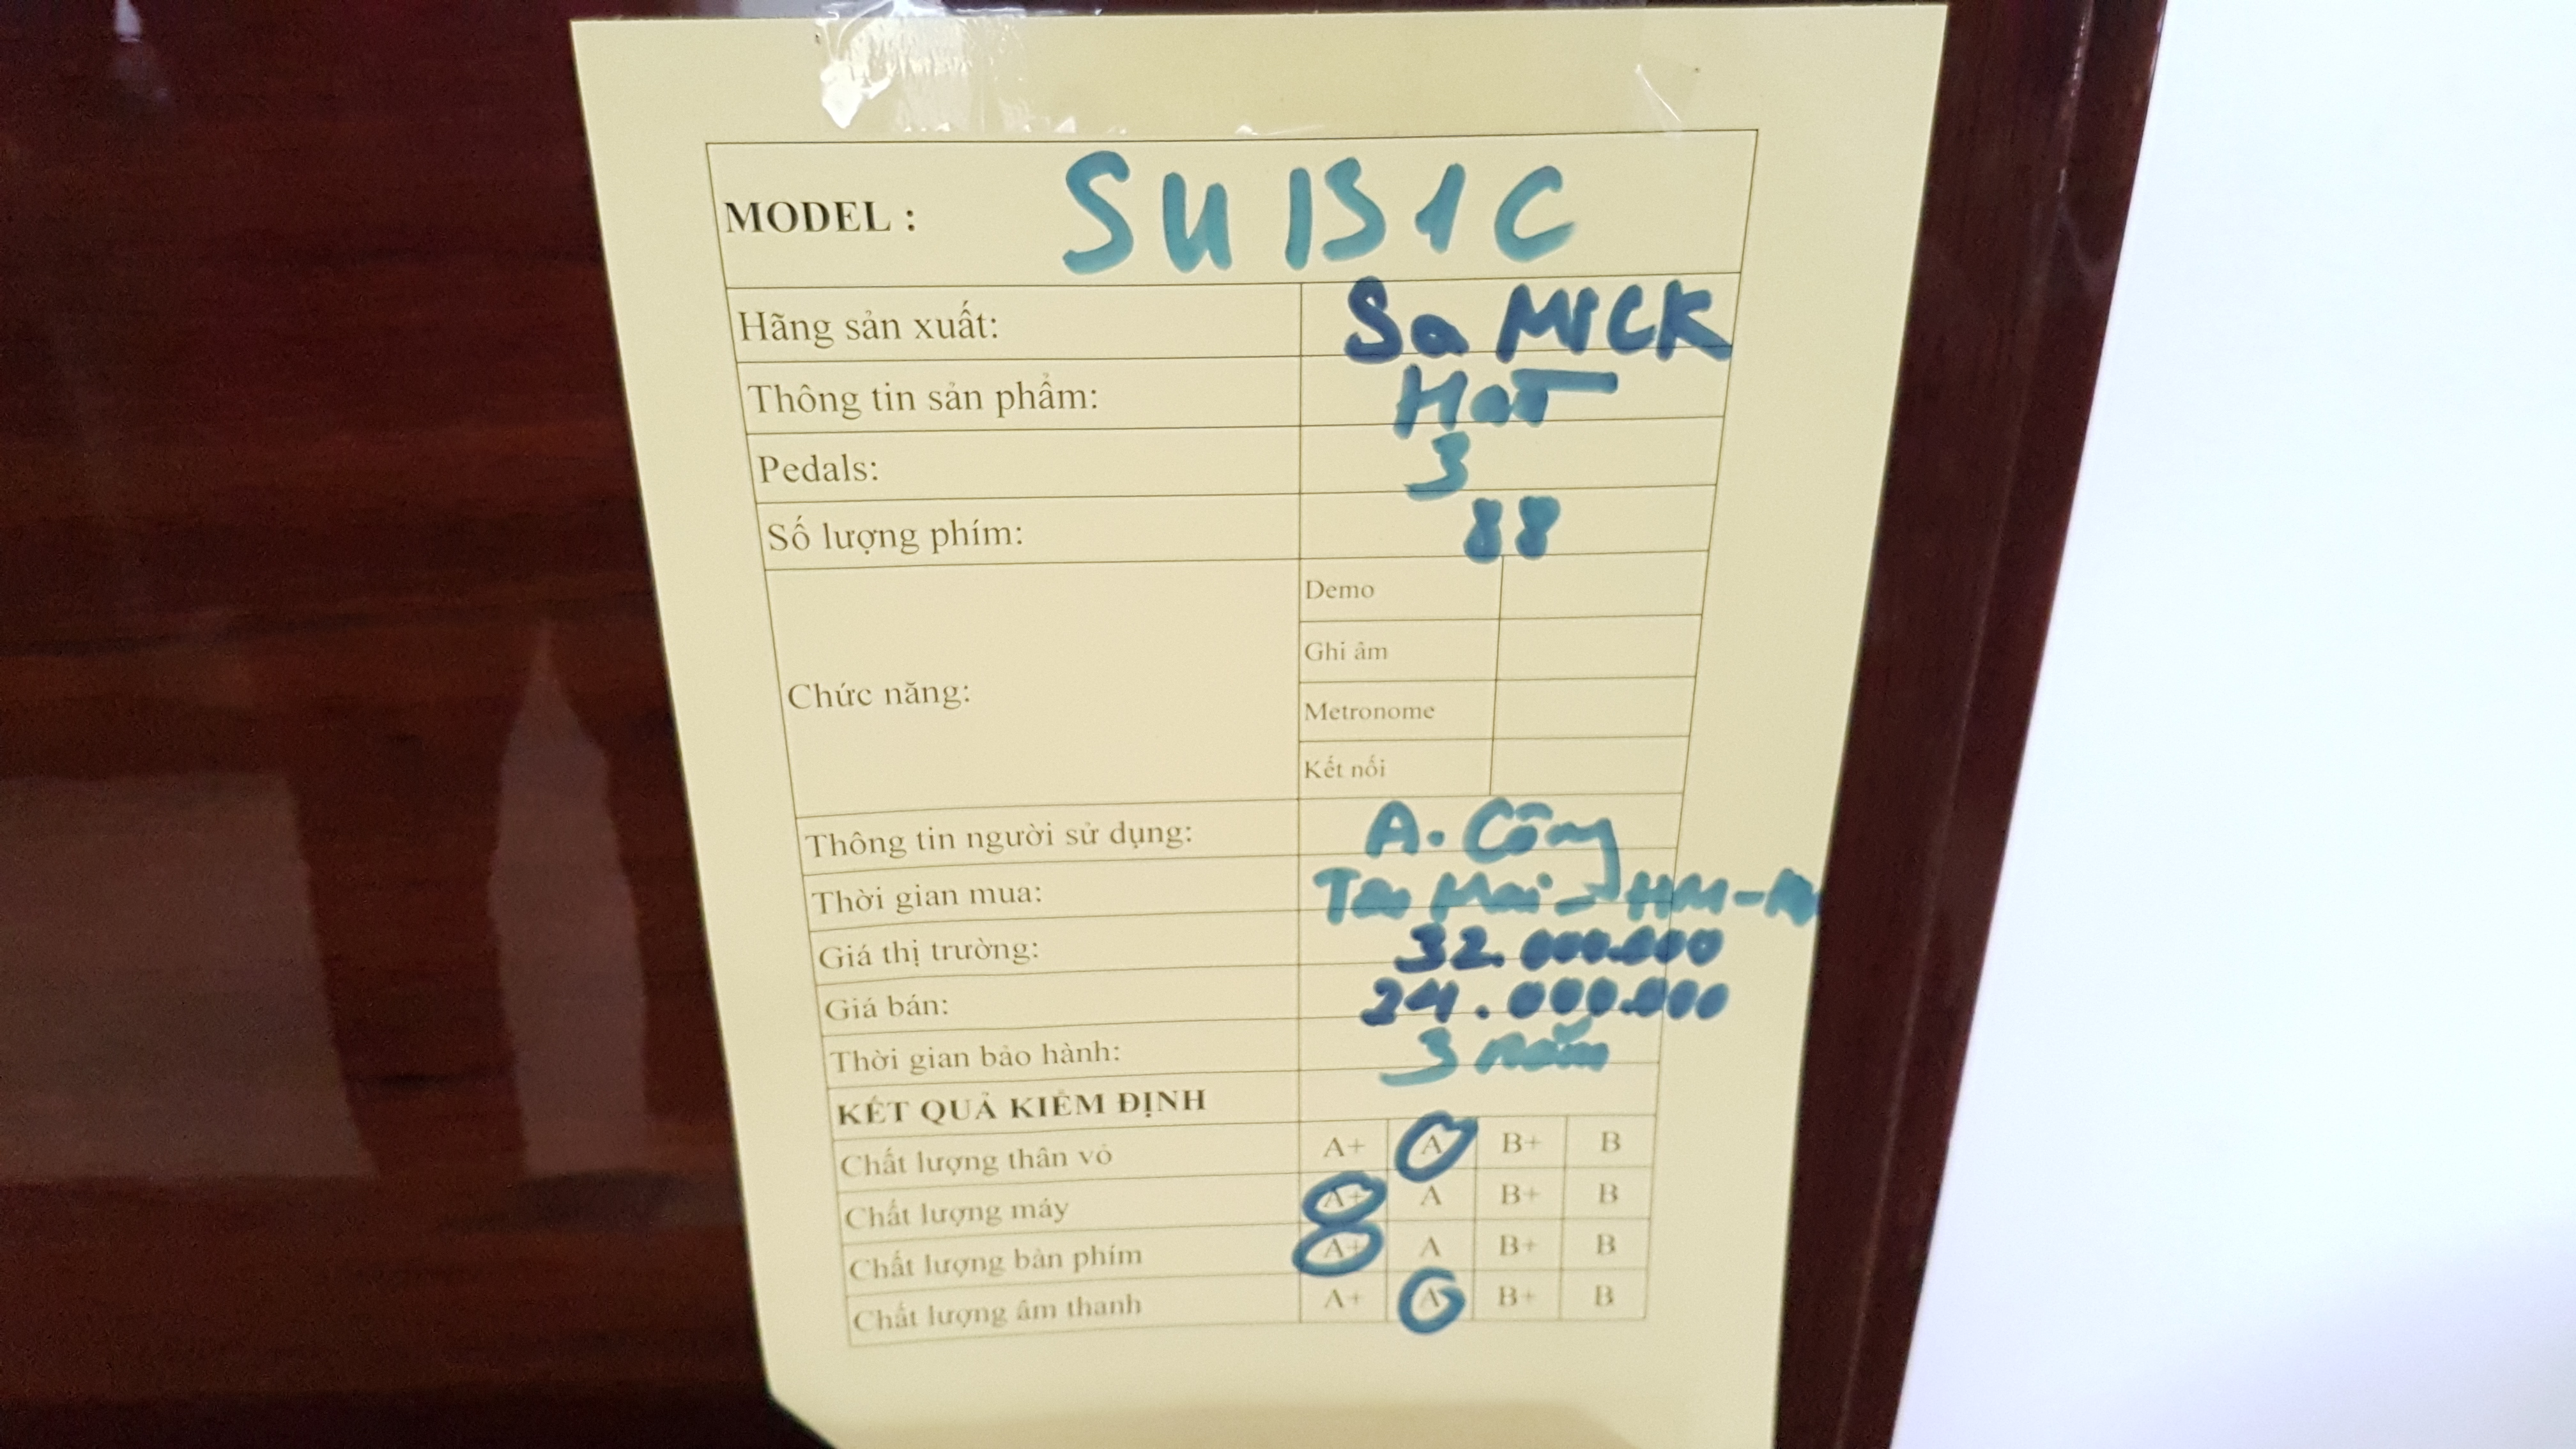 MODEL : SU 131 C
Hãng sản xuất: SaMICK
Thông tin sản phẩm:
Pedals: 3
Số lượng phím: 88
Chức năng:
Demo
Ghi âm
Metronome
Kết nối
Thông tin người sử dụng: A. Công
Thời gian mua: Tân Mai - HM -
Giá thị trường: 32.000.000
Giá bán: 24.000.000
Thời gian bảo hành: 3 năm
KẾT QUẢ KIỂM ĐỊNH
Chất lượng thân vỏ A+ A B+ B
Chất lượng máy A+ A B+ B
Chất lượng bàn phím A+ A B+ B
Chất lượng âm thanh A+ A B+ B